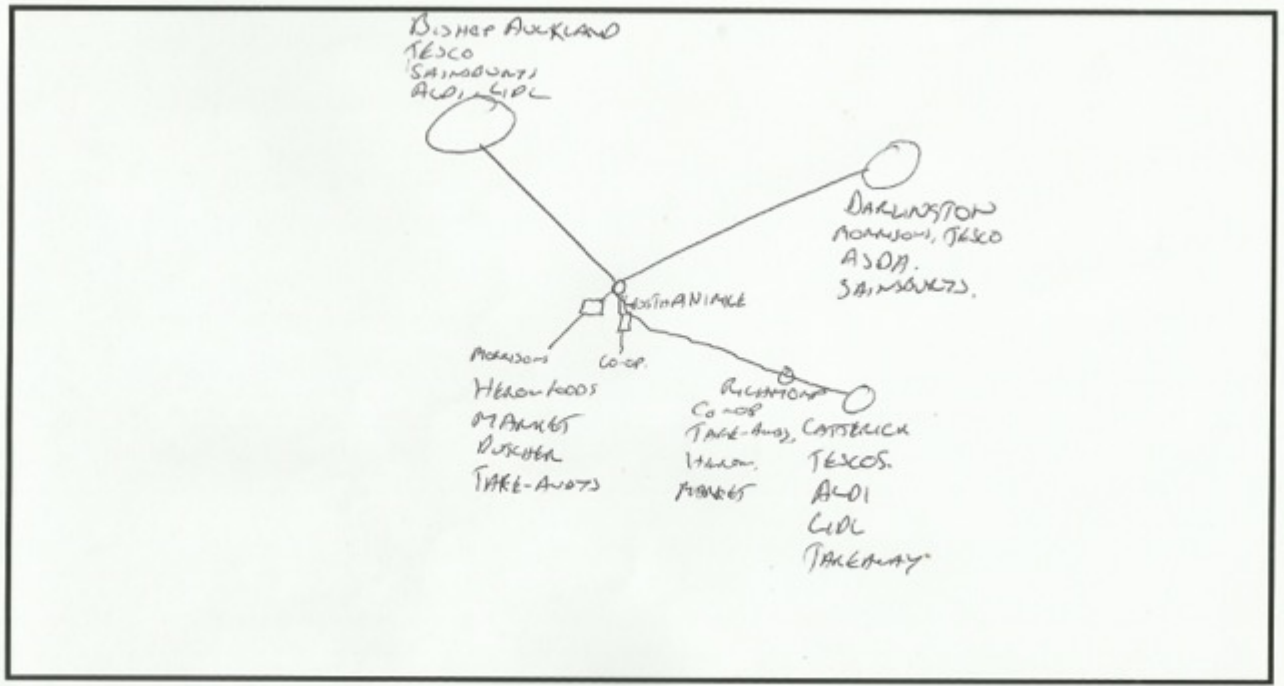 BISHOP AUCKLAND
TESCO
SAINSBURYS
ALDI - LIDL
DARLINGTON
MORRISONS, TESCO
ASDA.
SAINSBURYS.
MORRISONS
HERON FOODS
MARKET
BUTCHER
TAKE-AWAYS
CO-OP.
RICHMOND
CO-OP
TAKE-AWAY,
HERON.
MARKET
CATTERICK
TESCOS.
ALDI
LIDL
TAKEAWAY